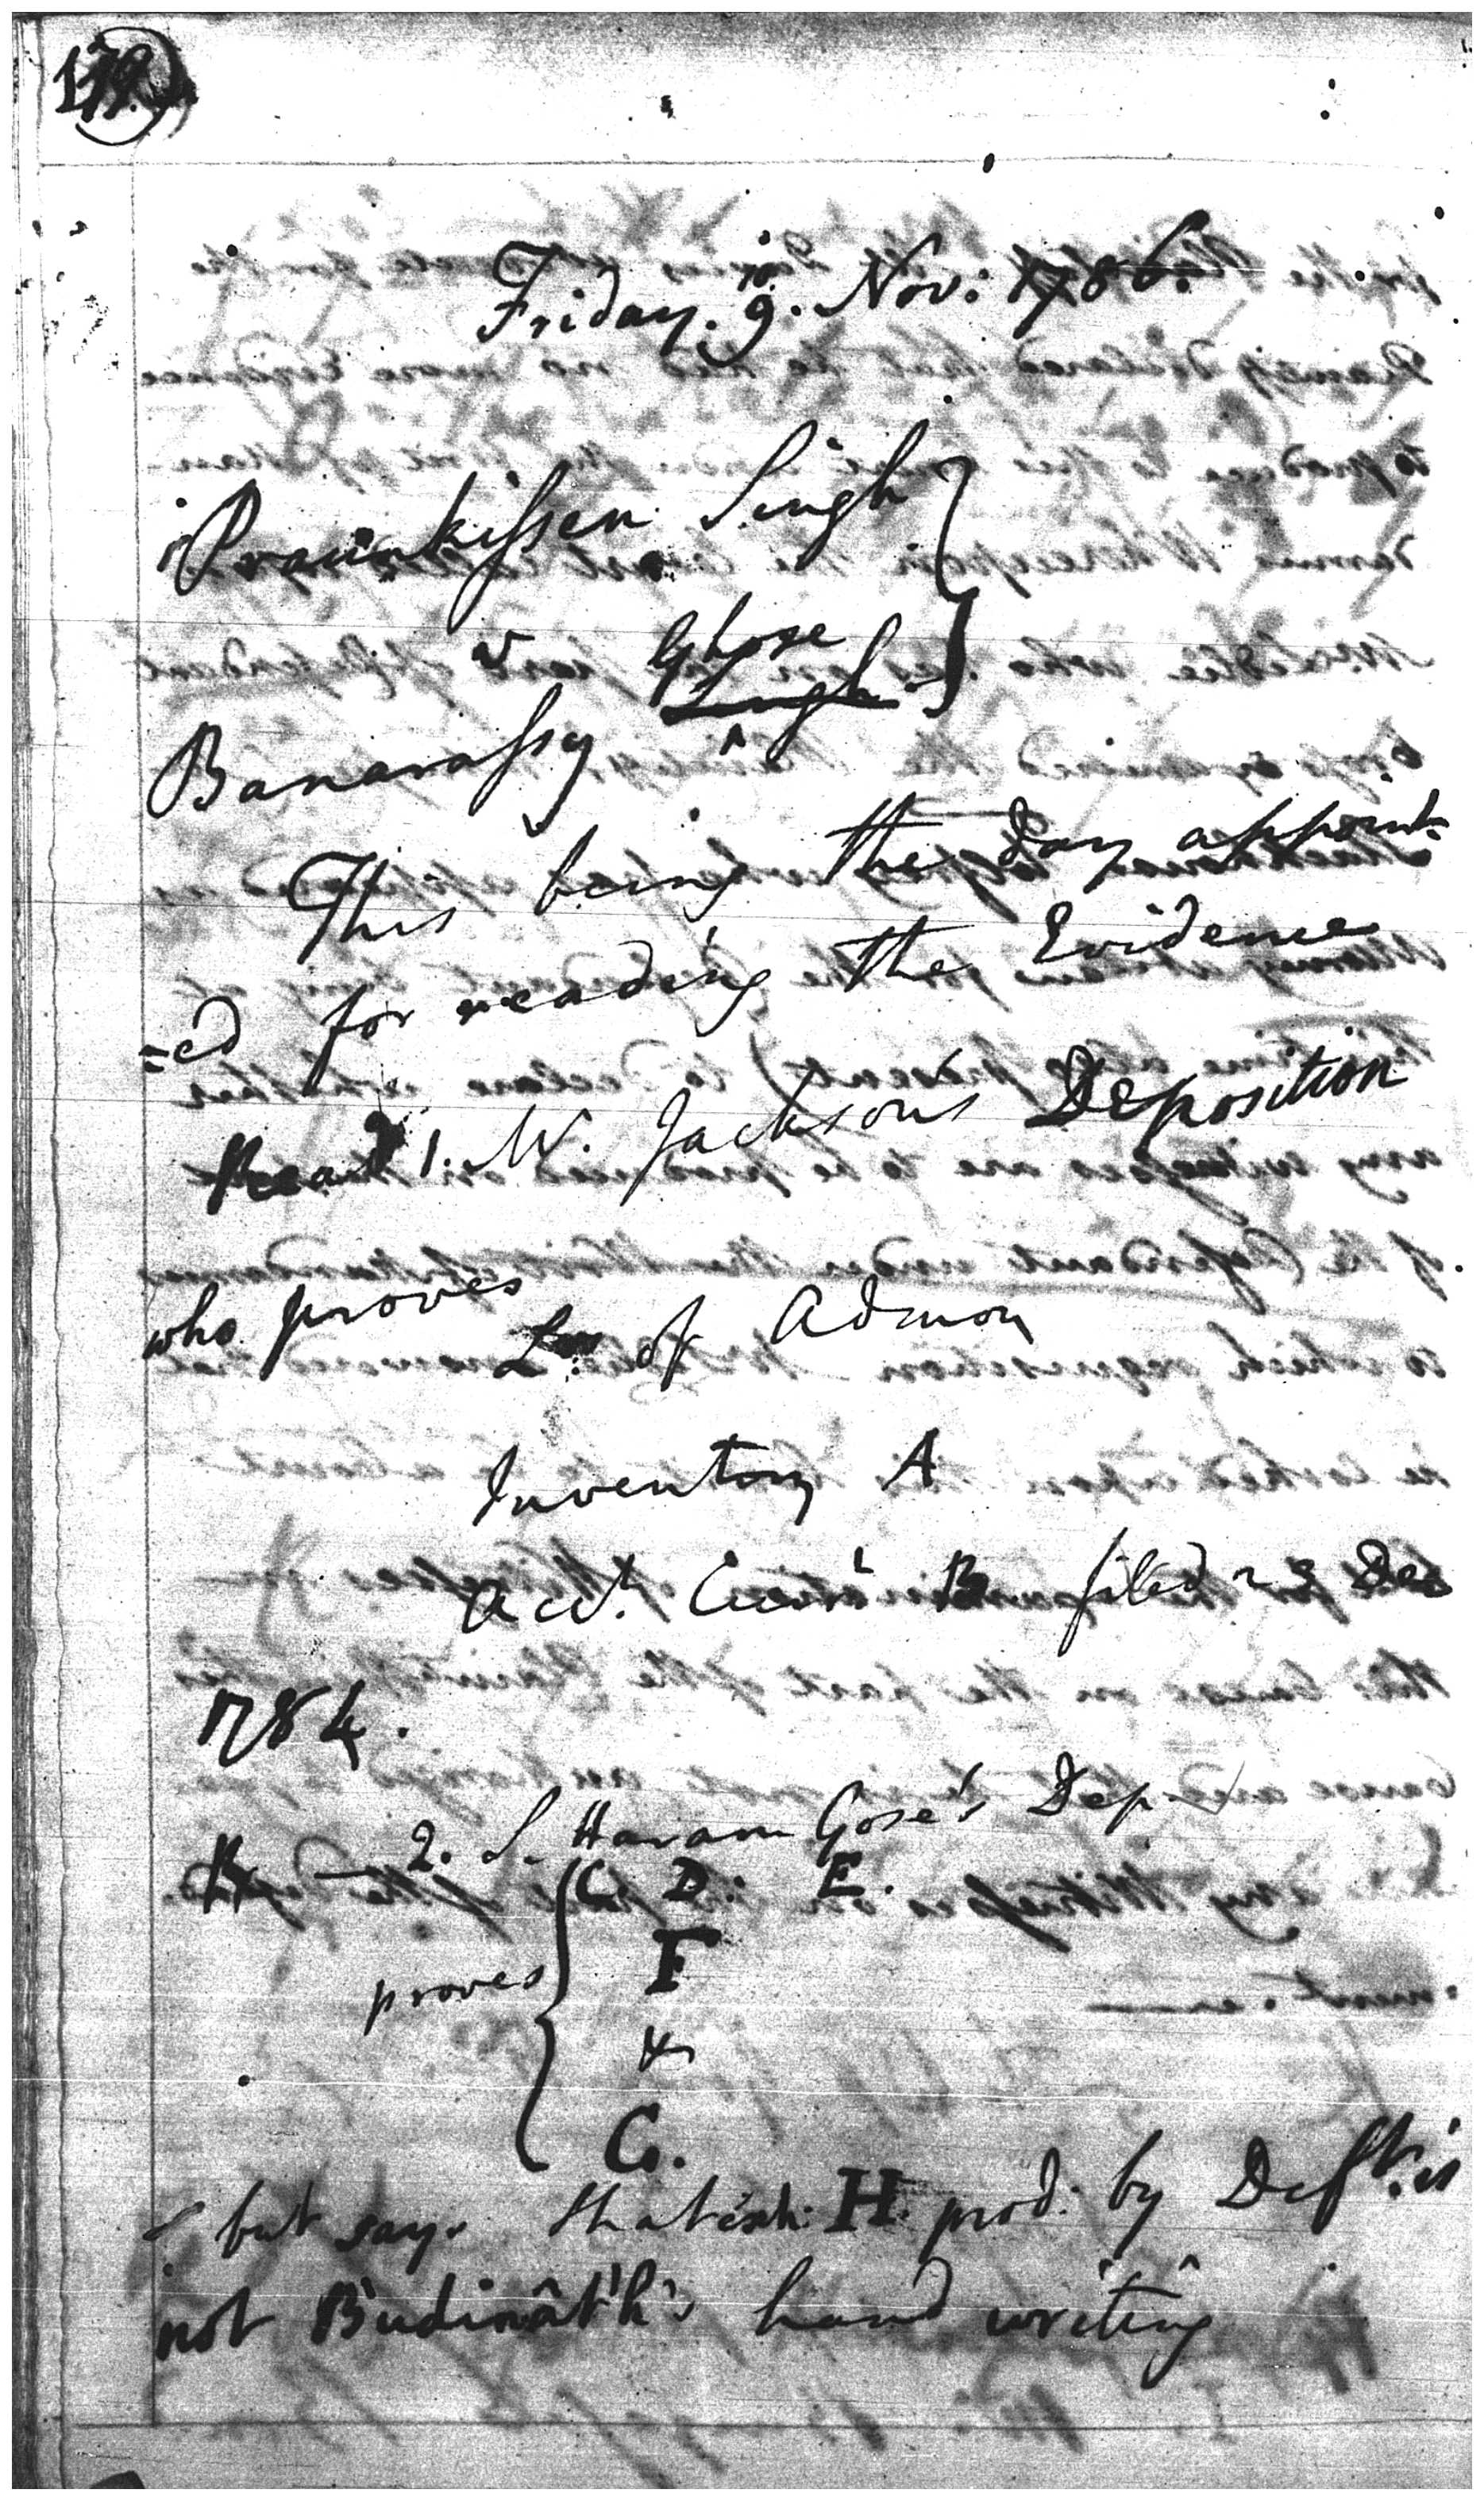 179
Friday. 9. Nov: 1786.
10.
Praunkissen Singh
v Ghose
Banarassy Singh
This being the day appoint=
=ed for reading the Evidence
Read 1. W. Jacksons Deposition
who proves
Lrs of Admon
Inventory A
Acct. Curt B filed 23 Dec
1784.
R — 2. S. Haram Gose's Dep.
C. D. E.
proves F
&
G.
& but says that exh: H. prod. by Deft. is
not Budinâth's hand writing